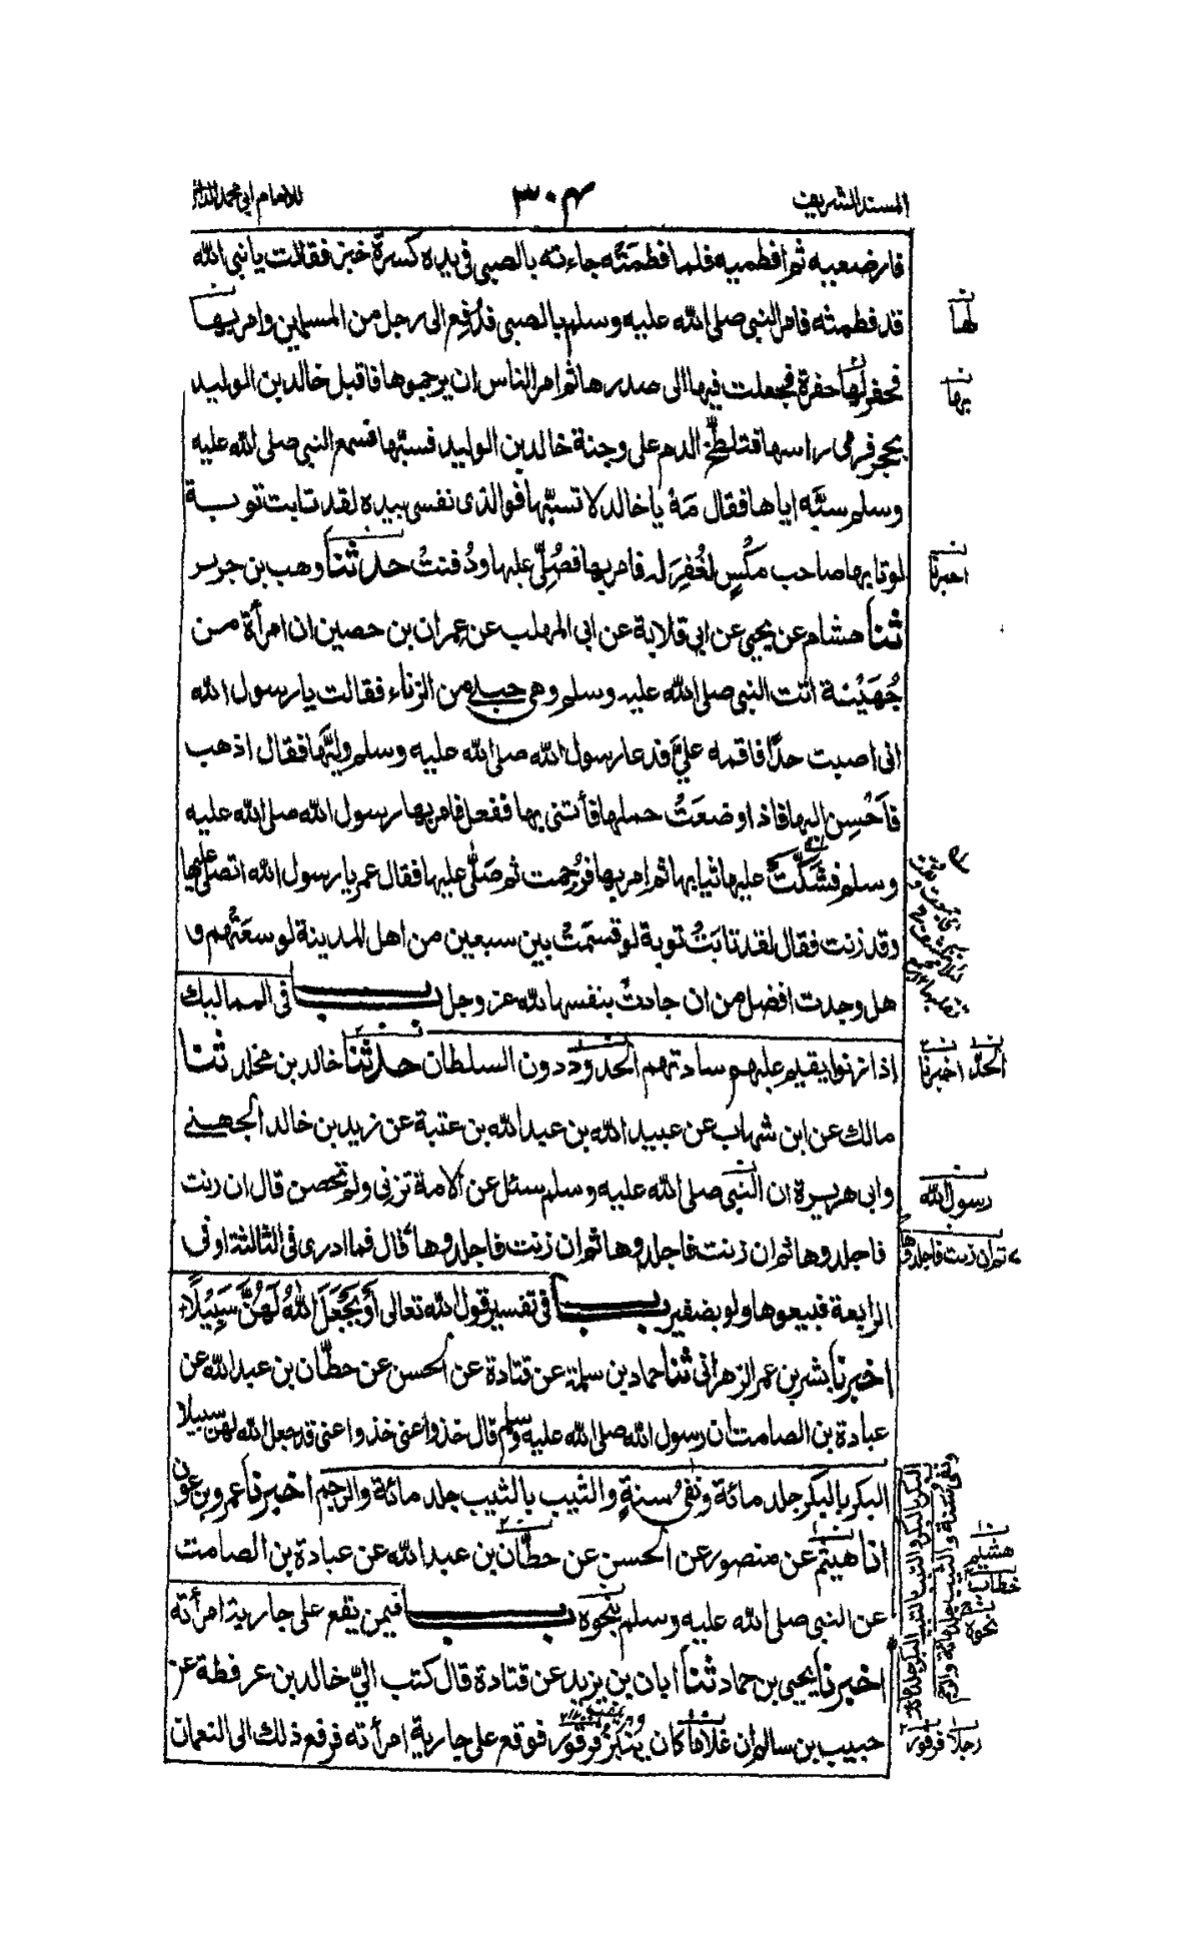 المسند الشريف
٣٠٤
للامام ابي محمد الدارمي
فارضعيه ثم افطميه فلما فطمَتْه جاءته بالصبي في يده كسرة خبز فقالت يا نبي الله
قد فطمته فامر النبي صلى الله عليه وسلم بالصبي فدُفِع الى رجل من المسلمين وامر بها
فحفر لها حفرة فجعلت فيها الى صدرها ثم امر الناس ان يرجموها فاقبل خالد بن الوليد
بحجر فرمى راسها فتلطّخ الدم على وجنة خالد بن الوليد فسبّها فسمع النبي صلى الله عليه
وسلم سبَّه اياها فقال مَهْ يا خالد لا تسبّها فوالذى نفسى بيده لقد تابت توبة
لو تابها صاحب مَكْسٍ لغُفِرَ له فامر بها فصُلِّىَ عليها ودُفنتْ حدثنا وهب بن جرير
ثنا هشام عن يحيى عن ابى قلابة عن ابى المهلب عن عمران بن حصين ان امرأة من
جُهَيْنة اتت النبي صلى الله عليه وسلم وهى حبلى من الزناء فقالت يا رسول الله
انى اصبت حدًّا فاقمه علىَّ فدعا رسول الله صلى الله عليه وسلم وليَّها فقال اذهب
فاَحْسِن اليها فاذا وضعَتْ حملها فأتنى بها ففعل فامر بها رسول الله صلى الله عليه
وسلم فشُكَّتْ عليها ثيابها ثم امر بها فرُجمت ثم صَلّى عليها فقال عمر يا رسول الله اتصلى عليها
وقد زنت فقال لقد تابَتْ توبة لو قسمَتْ بين سبعين من اهل المدينة لوسعَتْهم و
هل وجدت افضل من ان جادتْ بنفسها لله عز وجل باب فى المماليك
اذا زنوا يقيم عليهم ساداتهم الحدود دون السلطان حدثنا خالد بن مخلد ثنا
مالك عن ابن شهاب عن عبيد الله بن عبد الله بن عتبة عن زيد بن خالد الجهنى
وابى هريرة ان النبى صلى الله عليه وسلم سئل عن الامة تزنى ولم تحصن قال ان زنت
فاجلدوها ثم ان زنت فاجلدوها ثم ان زنت فاجلدوها قال فما ادرى فى الثالثة او فى
الرابعة فبيعوها ولو بضفير باب فى تفسير قول الله تعالى أَوْ يَجْعَلَ اللهُ لَهُنَّ سَبِيْلًا
اخبرنا بشر بن عمر الزهرانى ثنا حماد بن سلمة عن قتادة عن الحسن عن حطّان بن عبد الله عن
عبادة بن الصامت ان رسول الله صلى الله عليه وسلم قال خذوا عنى خذوا عنى قد جعل الله لهن سبيلا
البكر بالبكر جلد مائة ونفىُ سنةٍ والثيب بالثيب جلد مائة والرجم اخبرنا عمرو بن عون
انا هيثم عن منصور عن الحسن عن حطّان بن عبد الله عن عبادة بن الصامت
عن النبى صلى الله عليه وسلم بنحوه باب فيمن يقع على جارية امرأته
اخبرنا يحيى بن حماد ثنا ابان بن يزيد عن قتادة قال كتب الىّ خالد بن عرفطة عن
حبيب بن سالم ان غلاما كان يُنبز قرقور فوقع على جارية امرأته فرفع ذلك الى النعمان
لها
بها
اخبرنا
الحدّ
اخبرنا
رسول الله
ثم ان زنت فاجلدوها
هشيم
خطاب
نحوه
رجلا
قرقورا